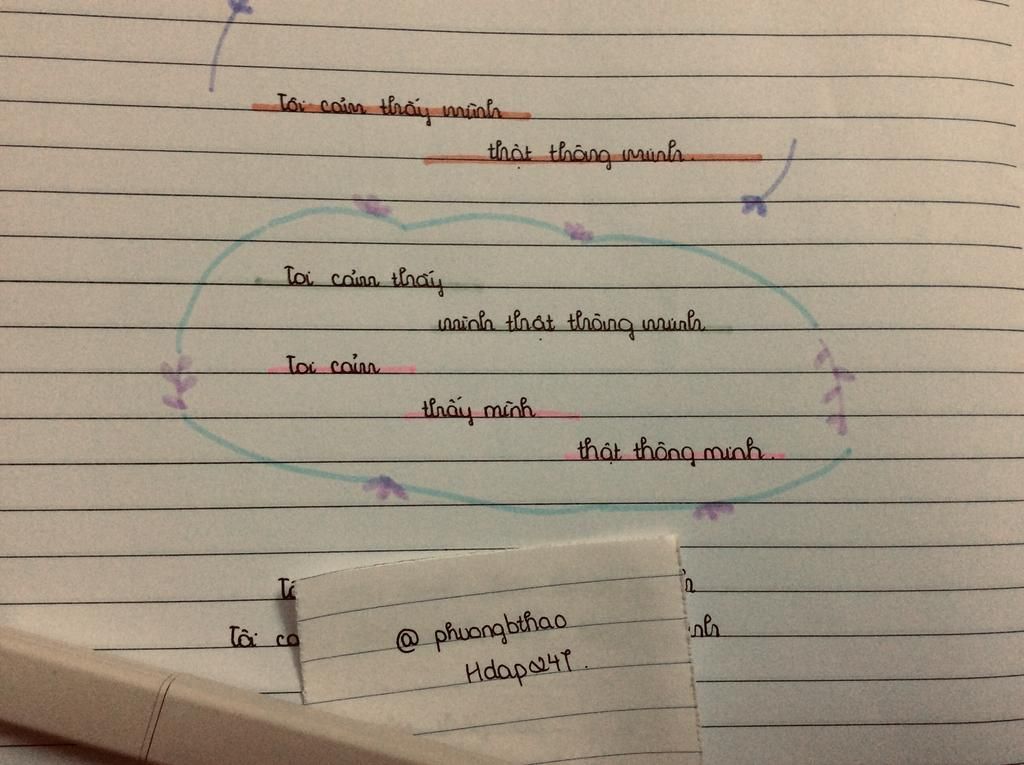 Tôi cảm thấy mình
thật thông minh.
Toi cảm thấy
mình thật thông minh
Toi cảm
thấy mình
thật thông minh.
Tôi
@ phuongbthao
Hdap247.